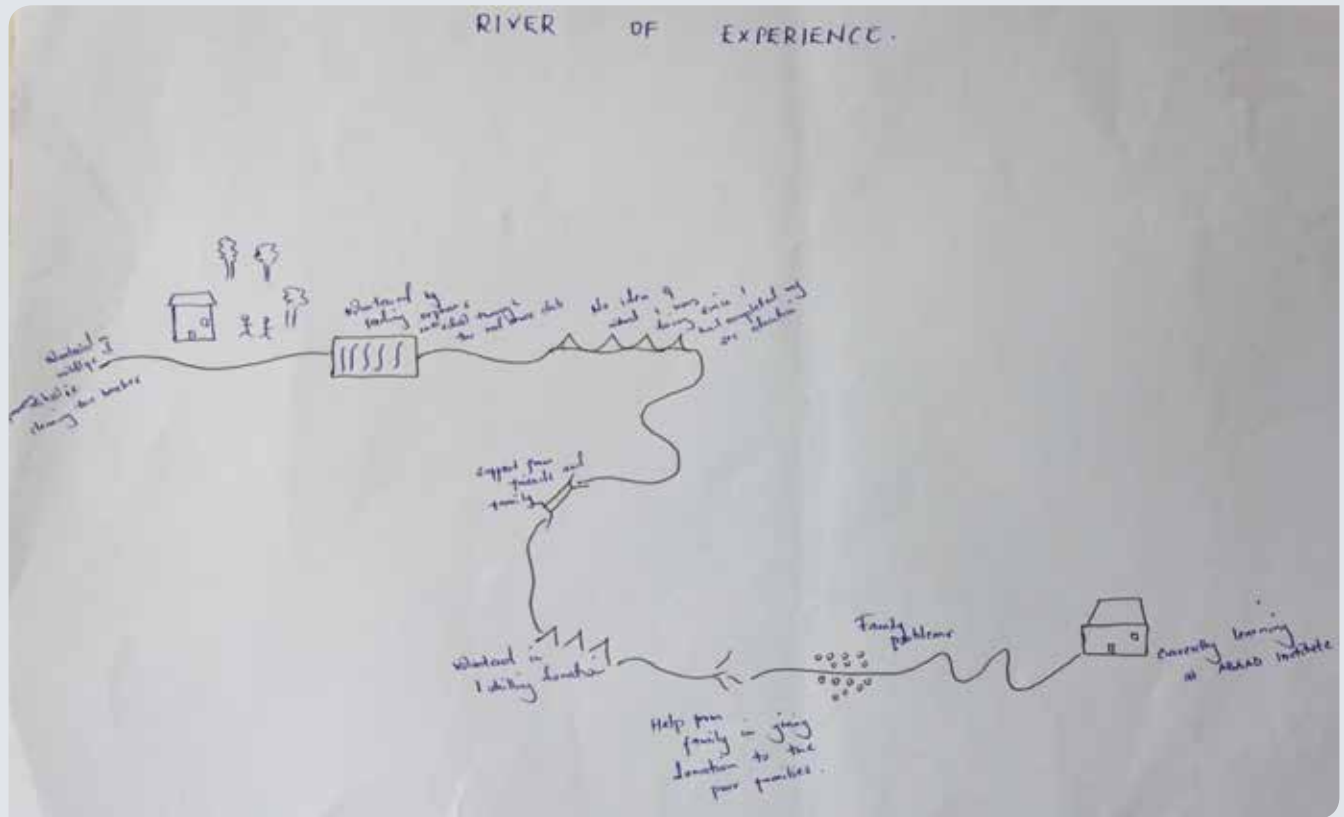 RIVER OF EXPERIENCE.
Volunteered in
village of
cleaning the beaches
Volunteered by
feeding orphans
through
the
No idea of
what I was
doing since I
had completed my
education
Support from
friends and
family
Volunteered in
donation
Help from
family in giving
donation to the
poor families.
Family
problems
Currently learning
at Institute